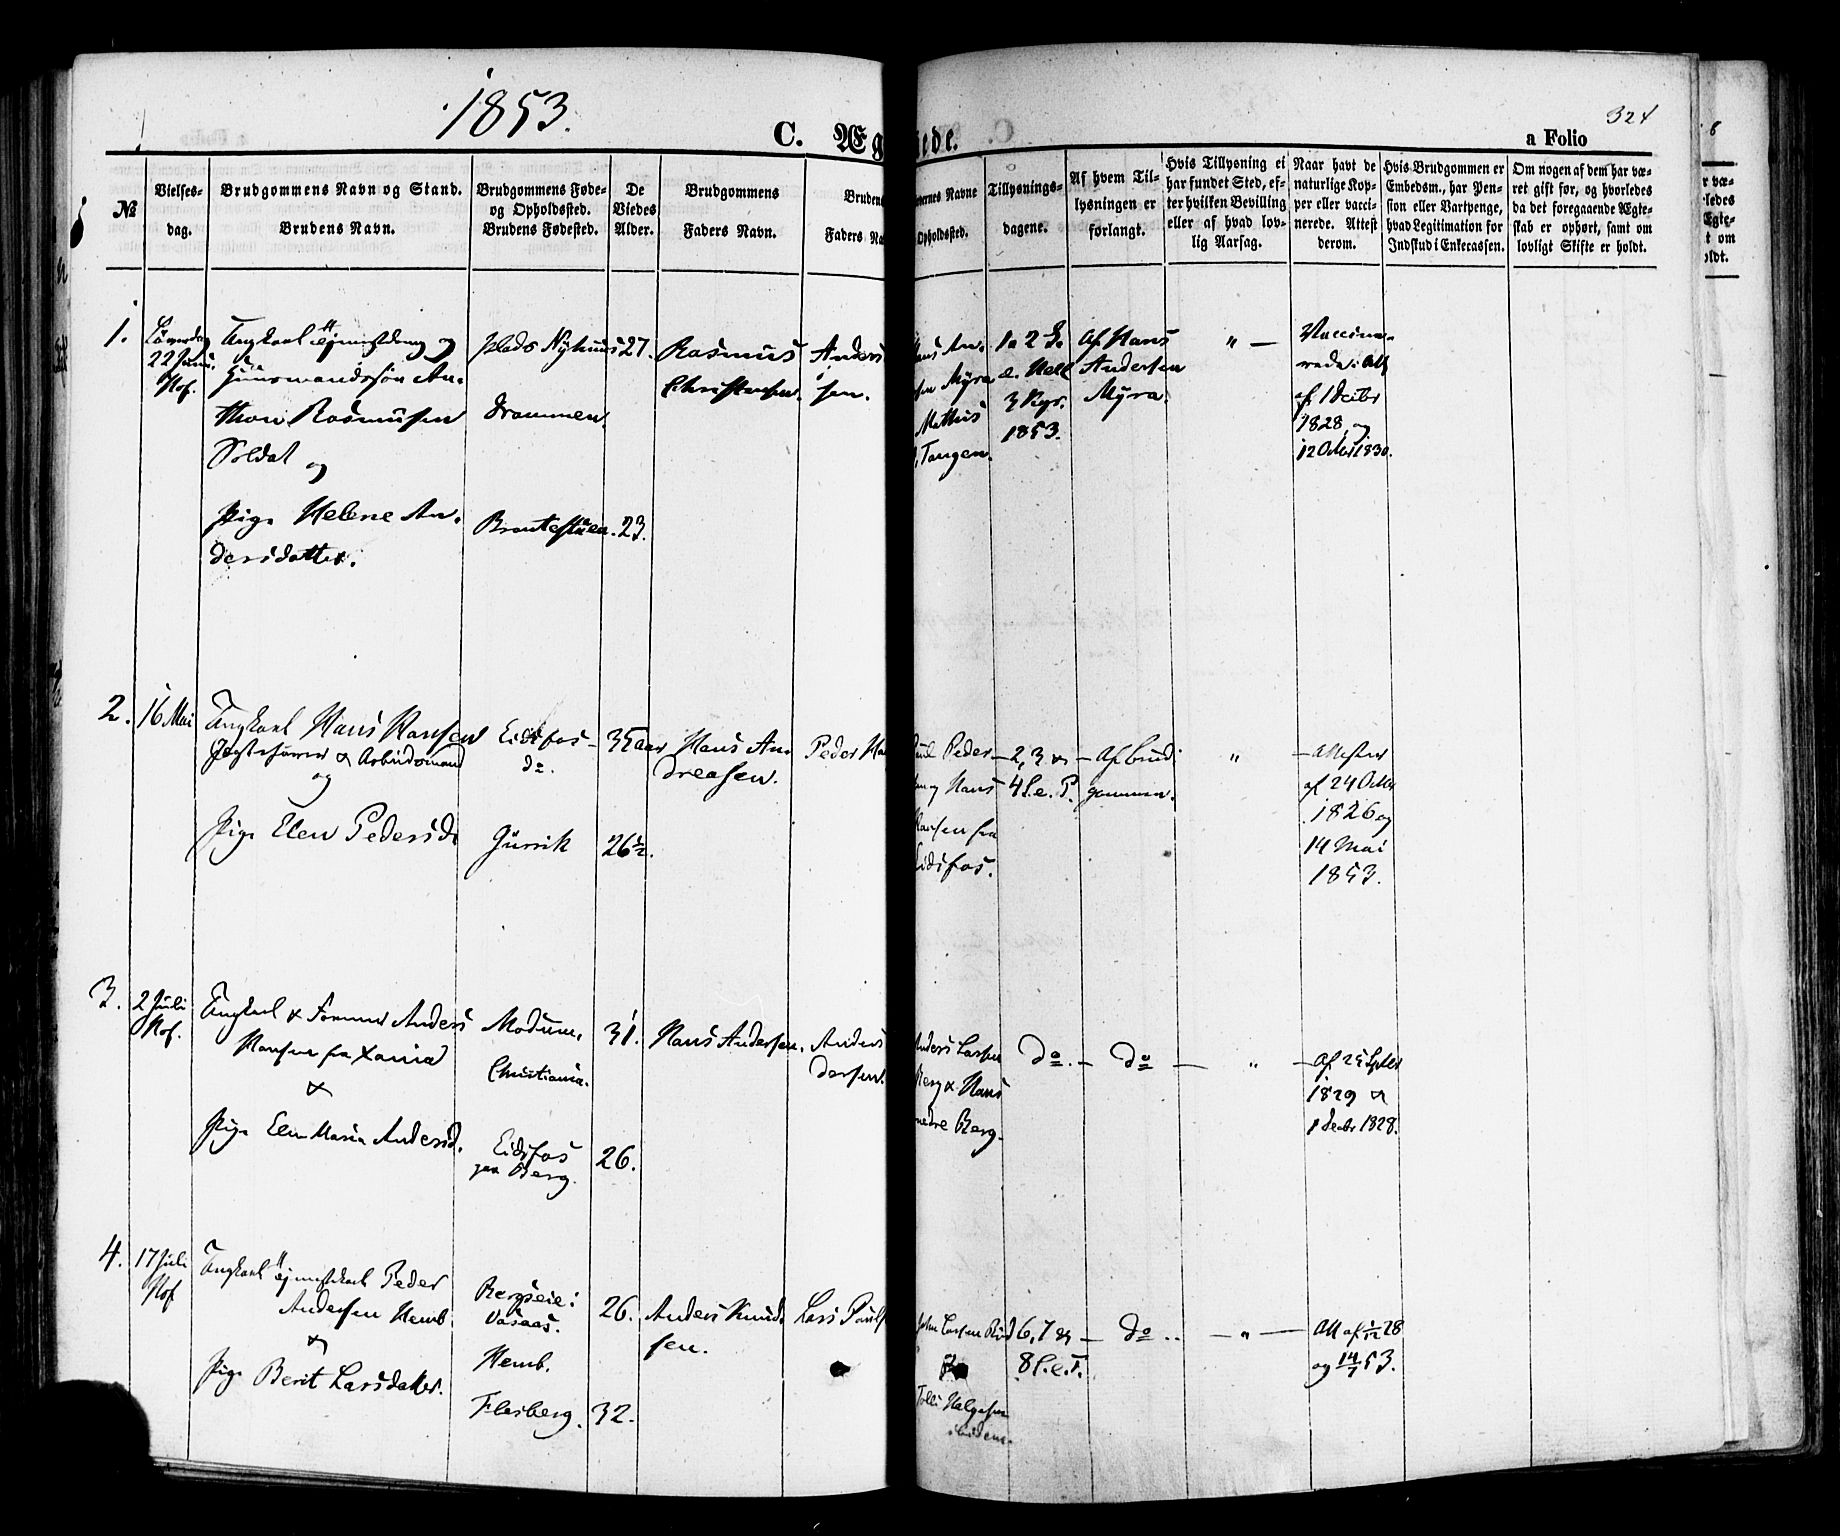 1853.
324
C. Æg
iede.
a Folio
8
№
Vielses-
dag.
Brudgommens Navn og Stand.
Brudens Navn.
Brudgommens Føde-
og Opholdssted.
Brudens Fødested.
De
Viedes
Alder.
Brudgommens
Faders Navn.
Brudens
Faders Na
ernes Navne
Opholdssted.
Tillysnings-
dagene.
Af hvem Til-
lysningen er
forlangt.
Hvis Tillysning ei
har fundet Sted, ef-
ter hvilken Bevilling
eller af hvad lov-
lig Aarsag.
Naar havt de
naturlige Kop-
per eller vacci-
nerede. Attest
derom.
Hvis Brudgommen er
Embedsm., har Pen-
sion eller Vartpenge,
hvad Legitimation for
Indskud i Enkecassen.
Om nogen af dem har væ-
ret gift før, og hvorledes
da det foregaaende Ægte-
skab er ophørt, samt om
lovligt Skifte er holdt.
1.
22
Hof.
Ungkarl Ejenstdreng og
Huusmandssøn An-
thon Rasmusen
Soldat
og
Pige Helene An-
dersdatter.
plads Nyhuus
Drammen.
Brantestuen.
27.
23.
Rasmus
Christensen.
Anders
sen.
Hans An-
sen Myra
Mathis
Tangen.
1 a 2 S.
e. Hell
3 Kgr.
1853.
Af Hans
Andersen
Myra.
" —
Vaccine-
rede: Att
af 1 Decbr
1828, og
12 Octbr 1830.
2.
16 Mai
Ungkarl Hans Hansen
Arbeidsmand
og
Pige Elen Pedersd.
Eidsfos
do.
Gurrik
35 aar
26½.
Hans An-
dreasen.
Peder Ha
Peder
og Hans
Hansen fra
Eidsfos.
— 2, 3 &
4 S. e. P.
— Af Brud-
gommen.
"
— Attester
af 24 Octbr
1826 og
14 Mai
1853.
3.
2 Juli
Hof.
Ungkarl & Former Anders
Hansen fra Xania
&
Pige Elen Maria Andersd.
Modum,
Christiania.
Eidsfos
paa Berg.
31.
26.
Hans Andersen.
Anders
dersen.
Anders Larsen
Berg & Hans
nedre Berg.
do. —
do —
"
— Af 25 Septbr
1829 &
1 Decbr 1828.
4.
17 Juli
Hof
Ungkarl Ejenstkarl Peder
Andersen Hemb.
&
Pige Berit Larsdatter.
Bergseie:
Vasaas.
Hemb.
Flesberg.
26.
32.
Anders Knud-
sen.
Lars Pauls
John Larsen
Helgesen
ibidem.
6, 7 &
8 S. e. T.
— do ..
— " —
Att af 1/12 28
og 14/7 53.